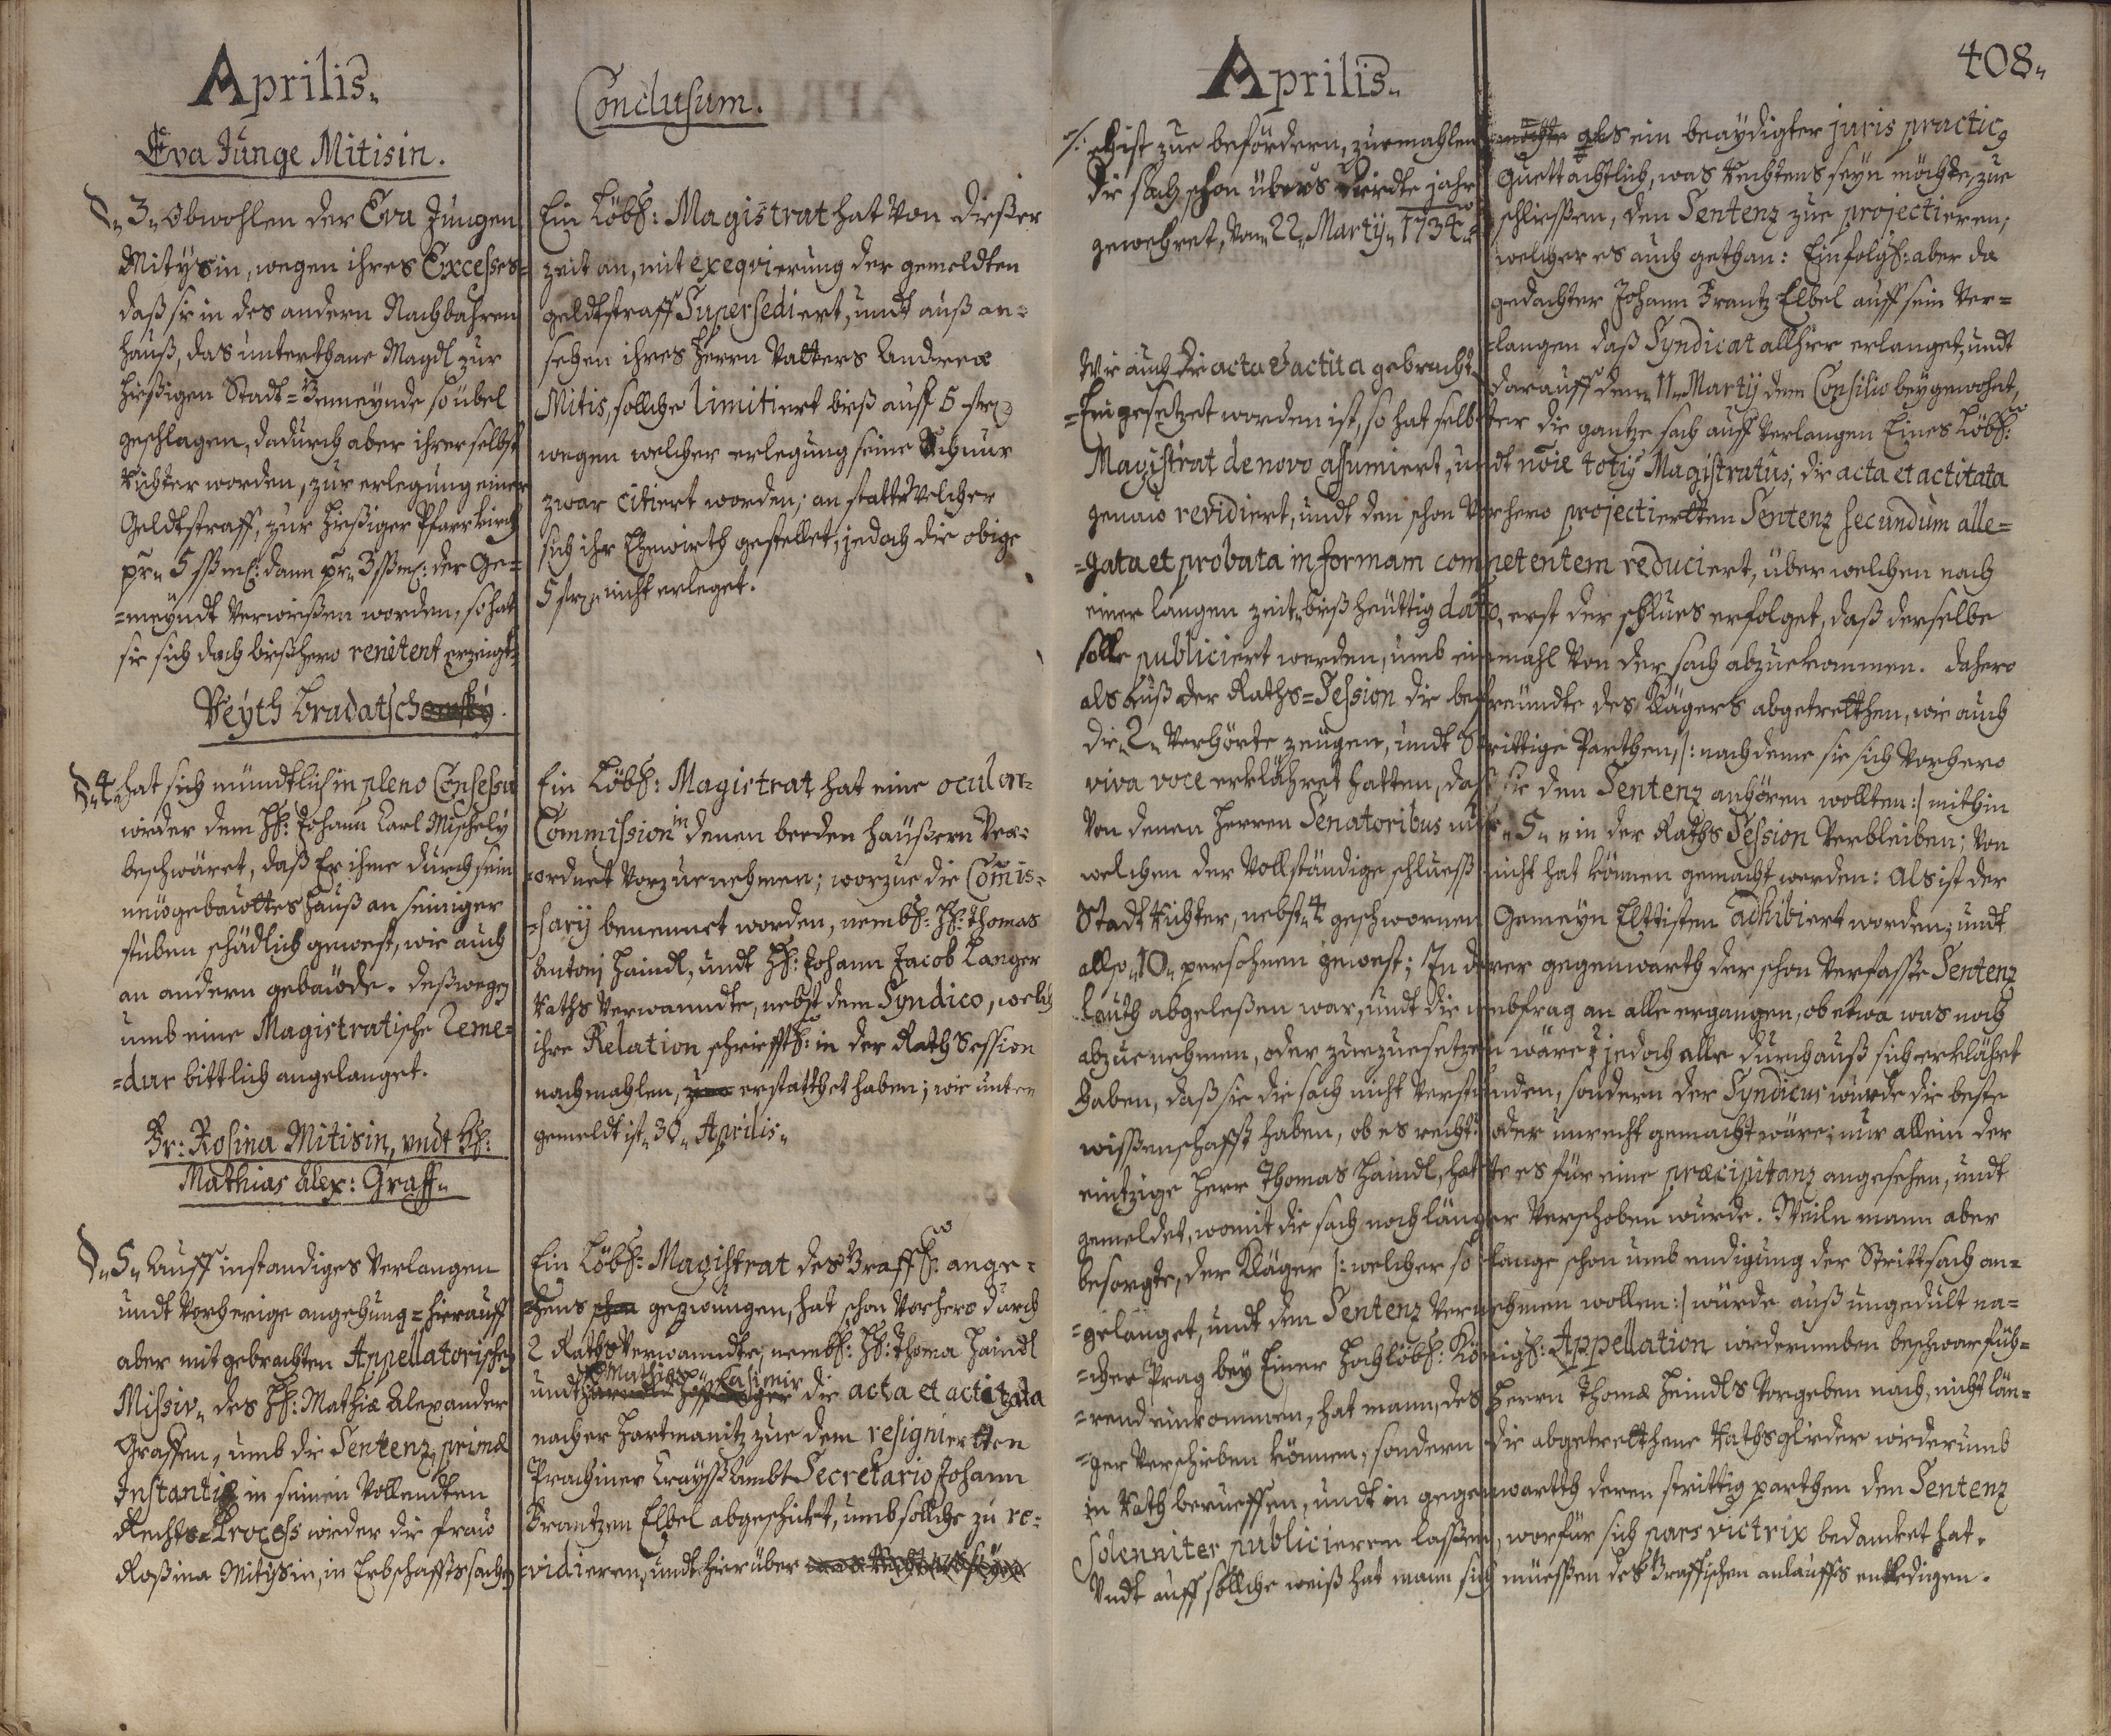 Aprilis.
Eva Junge Mitisin.
§ 3. Obwohlen der Eva Jungen
Mitysin, wegen ihres Excesses-
daß sie in des andern Nachbahren
hauß, das unterthane Magdl zur
hießigen Stadt-Gemeynde so übel
geschlagen, dadurch aber ihrer selbst
Richter worden, zur erlegung einer
Geldtstraff, zur hießiger Pfarrkirch
pr. 5 dann pr. 3 der Ge-
=meyndt verwießen worden, so hat
sie sich doch bißhero renitent erzeigt.
Veyth Bradatsch
§ 4. hat sich mündtlich in pleno Consessu
wieder dem H: Johann Carl Mischely
beschwäret, daß Er ihme durch sein
neugebauttes hauß an seiniger
stuben schädlich gewest, wie auch
an andern gebaüde. deßwegen
umb eine Magistratische Reme-
=dur bittlich angelanget.
Fr: Rosina Mitisin, undt H:
Mathias Alex: Graff.
§ 5. Auff instandiges Verlangen
undt Vorherige angehung = hierauff
aber mit gebrachten Appellatorischen
Missiv, des H: Mathiæ Alexander
Graffen, umb die Sentenz primæ
Instantiæ in seinen Vollendten
Rechts-Process wieder die frau
Roßina Mitysin, in Erbschafftssachen
Conclusum.
Ein Löbl: Magistrat hat von dießer
zeit an, mit exeqvierung der gemeldten
geldtstraff Supersediert, undt auß an-
sehen ihres Herrn Vatters Andreæ
Mitis, sollche limitiert bieß auff 5
wegen welcher erlegung seine Schnur
zwar citiert worden; an statt welcher
sich ihr Ehewirth gestellet, jedoch die obige
5 nicht erleget.
Ein Löbl: Magistrat hat eine ocular-
Commission in denen beeden häußern Ver-
=ordnet vorzunehmen; worzue die Comis-
=sarÿ benennet worden, nembl: H: Thomas
Antonj Haindl, undt H: Johann Jacob Langer
Raths Verwanndte, nebst dem Syndico, welch
ihre Relation schrifftl: in der Rath Session
nachmahlen, erstatthet haben; wie unten
gemeldt ist 30. Aprilis.
Ein Löbl: Magistrat des Graffl: ange-
hens gezwungen, hat schon vorhero durch
2 Raths Verwanndte, nembl: H: Thoma Haindl
undt H: Mathias Casimir die acta et actitata
nacher Hartmanitz zue dem resignierten
Prachiner Crayßambt Secretario Johann
Frantzen Elbel abgeschickt, umb sollche zu re-
vidieren, undt hierüber
Aprilis.
408.
ehist zue befördern, zuemahlen
die sach schon übers Vierdte jahr
gewehret, Von 22. Martÿ 1734.
Wie auch die acta & actita gebracht
als ein beaydigter juris practicg
guettachtlich, was Rechtens seyn möchte, zue
schliessen, den Sentenz zue projectieren,
welcher es auch gethan: Einfolgl: aber da
gedachter Johann Frantz Elbel auff sein Ver-
=langen daß Syndicat allhier erlanget, undt
darauff den 11. Martÿ dem Consilio beygewohnt,
=Eingesetzet worden ist, so hat selbter die gantze sach auff Verlangen Eines Löbl:
Magistrat de novo assumiert, undt nõie totig Magistratus, die acta et actitata
genaw revidiert, undt den schon Vorhero projectiertten Sentenz secundum alle-
=gata et probata in formam competentem reduciert, über welchen nach
einer langen zeit, biß heüttig dato, erst der schlues erfolget, daß derselbe
solle publiciert werden, umb einmahl von der sach abzuekommen. Dahero
als auß der Raths-Session die befreündte des Klägers abgetretten, wie auch
die 2. Verhörte zeügen, undt Strittige Parthen, /: nachdeme sie sich Vorhero
viva voce erklähret hatten, daß sie den Sentenz anhören wollten :/ mithin
von denen Herren Senatoribus nur 5. in der Raths Session Verbleiben; Von
welchen der Vollständige schluess nicht hat können gemacht werden: Als ist der
Stadt Richter, nebst 4 geschwornen Gemeyn Elttisten adhibiert worden, undt
allso 10. persohnen gewest; In derer gegenwarth der schon Verfasste Sentenz
lauth abgeleßen war, undt die umbfrag an alle ergangen, ob etwa was noch
abzuenehmen, oder zuezuesetzen wäre? jedoch alle durchauß sich erklährt
haben, daß sie die sach nicht Verstünden, sondern der Syndicus wurde die beste
wissenschafft haben, ob es recht oder unrecht gemacht wäre; nur allein der
eintzige Herr Thomas Haindl, hatte es für eine præcipitanz angesehen, undt
gemeldet, womit die sach noch länger Verschoben wurde. Weiln mann aber
besorgte, der Kläger /: welcher so lange schon umb endigung der Strittsach an-
=gelanget, undt den Sentenz vernehmen wollen :/ würde auß ungedult na-
=cher Prag bey Einer Hochlöbl: Königl: Appellation wiederumben beschwarfüh-
=rend einkommen, hat mann, des Herrn Thomæ Heindls Vorgeben nach, nicht län-
=ger Verschieben können, sondern die abgetrettene Rathsglieder wiederumb
in Rath berueffen, undt in gegenwartth deren strittig parthen den Sentenz
Solenniter publicieren lassen, worfür sich pars victrix bedancket hat.
Undt auff sollche weiß hat mann sich müessen des Graffischen anlauffs entledigen.